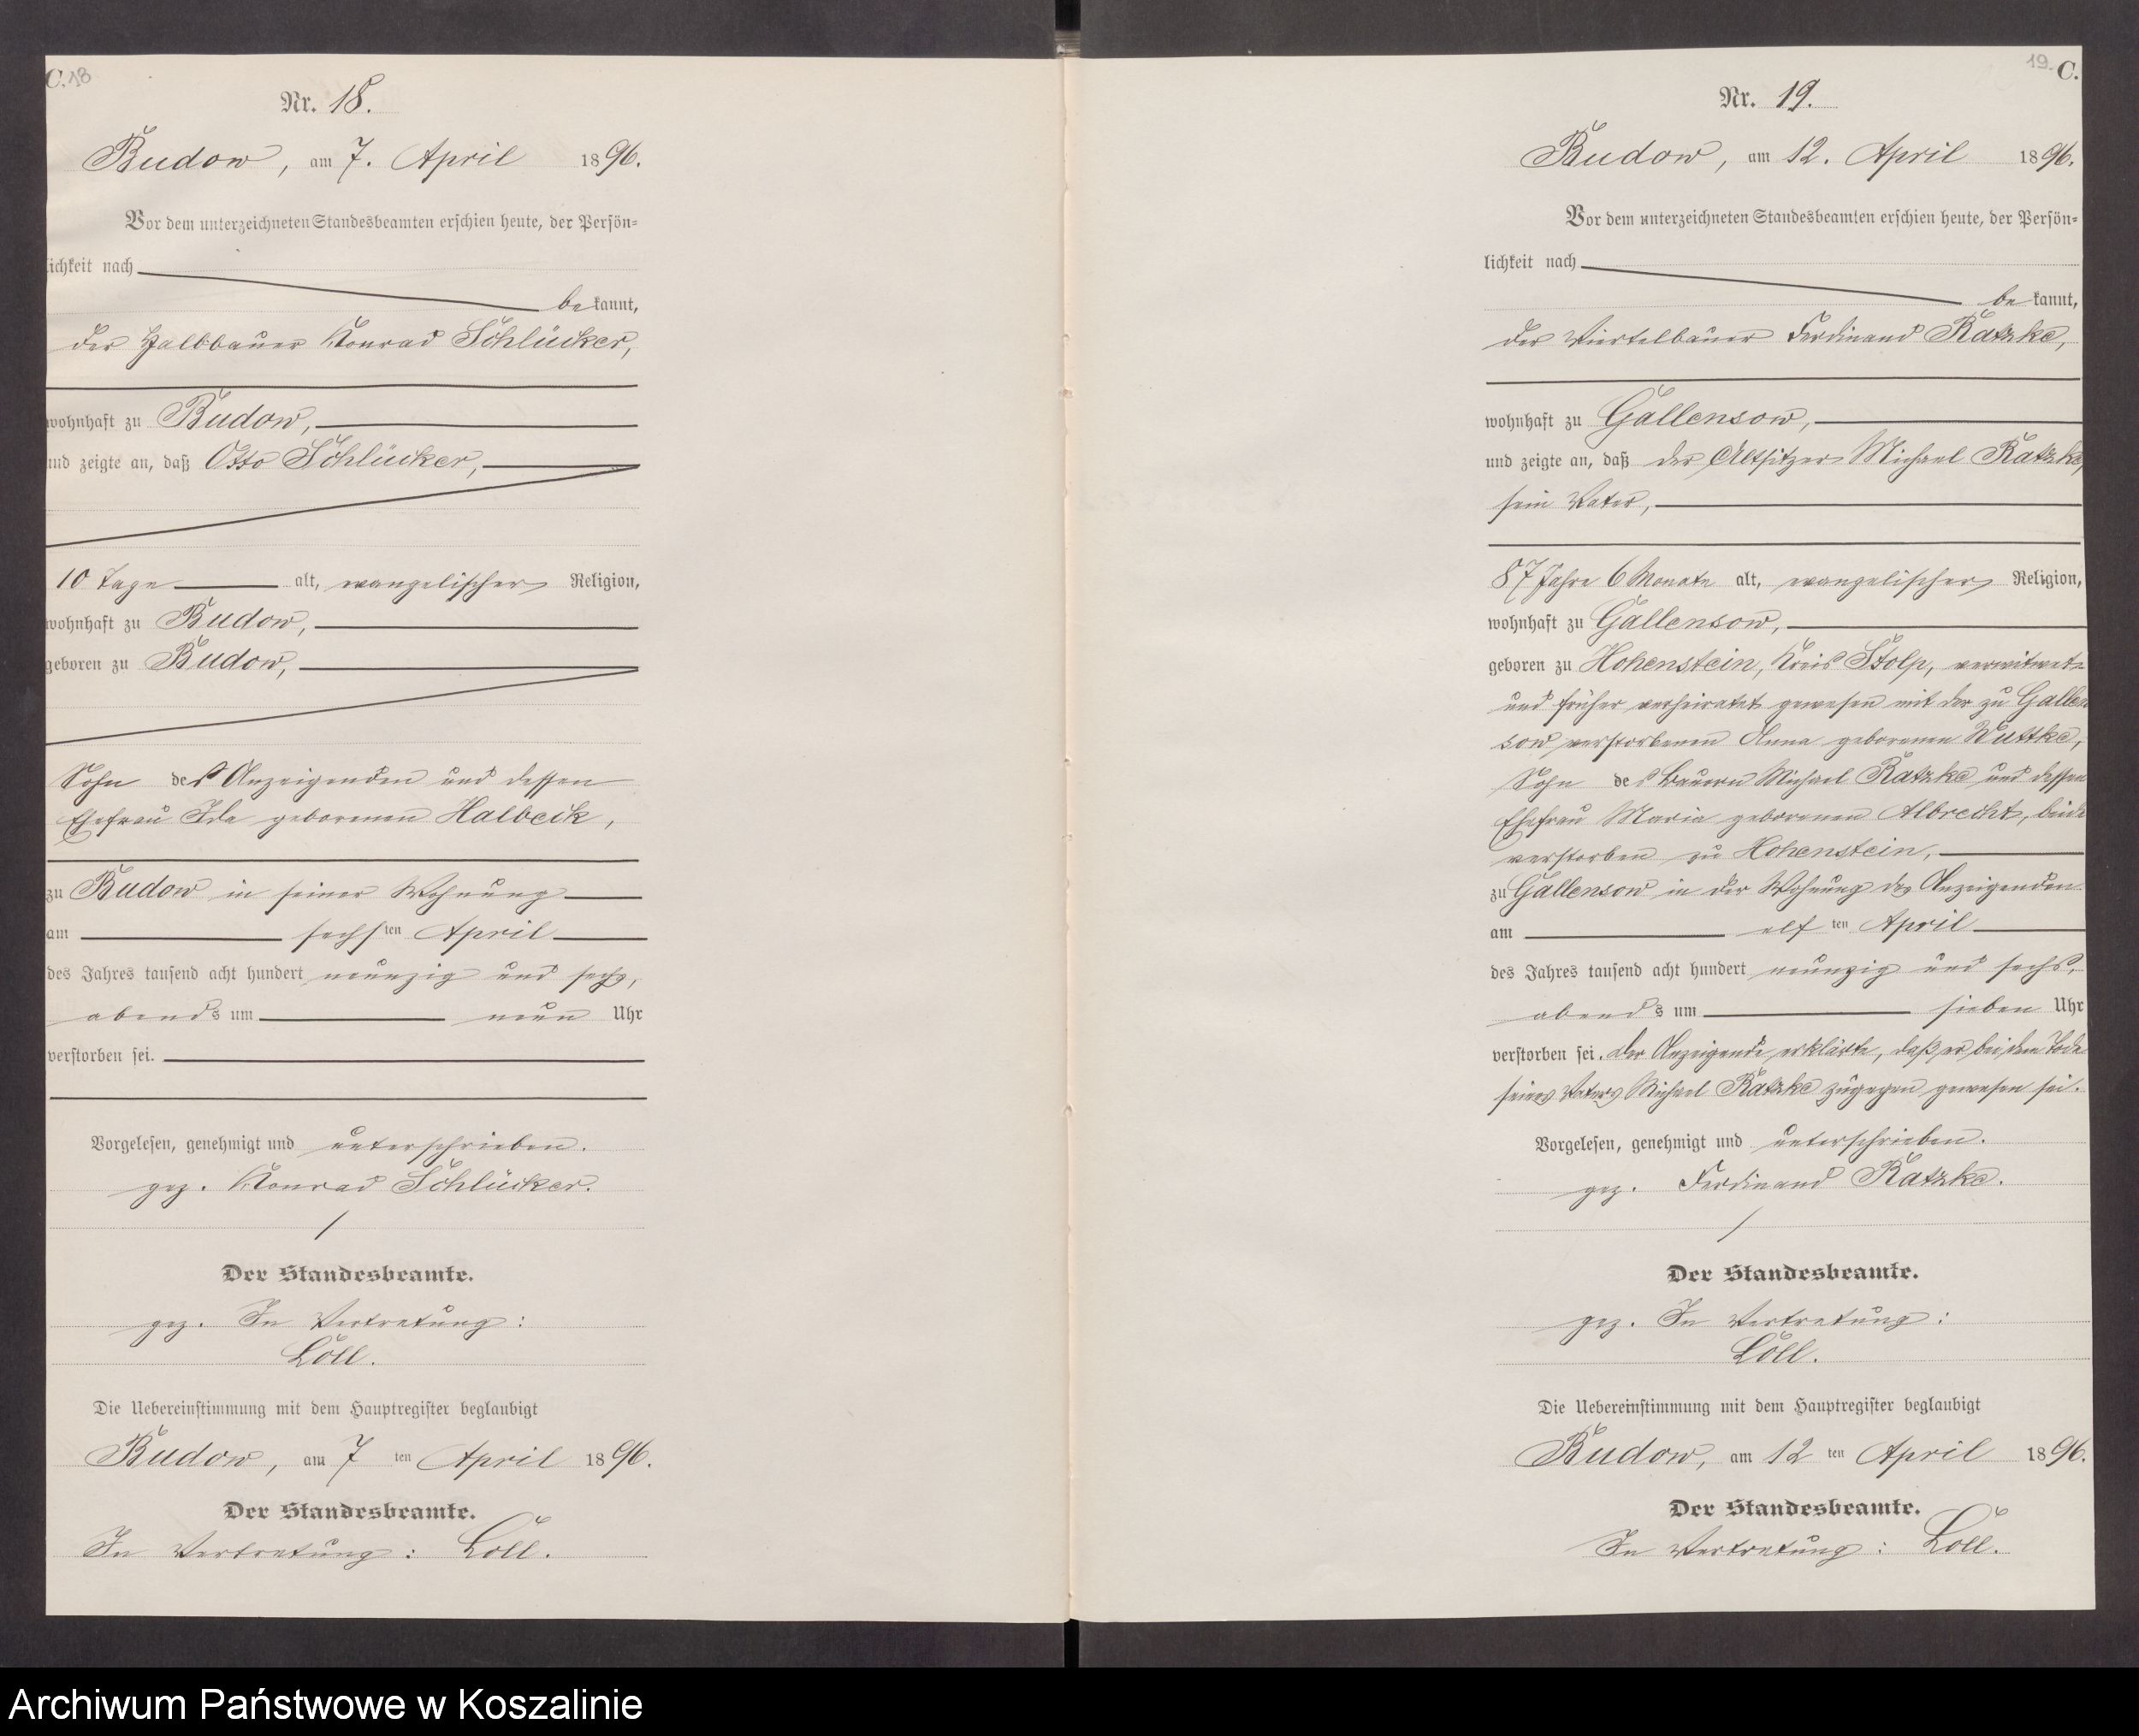 C. 18
Nr. 18.
Budow, am 7. April 1896.
Vor dem unterzeichneten Standesbeamten erschien heute, der Persön-
lichkeit nach
be kannt,
der Halbbauer Konrad Schlücker,
wohnhaft zu Budow,
und zeigte an, daß Otto Schlücker,
10 Tage alt, evangelischer Religion,
wohnhaft zu Budow,
geboren zu Budow,
Sohn des Anzeigenden und dessen
Ehefrau Ida geborenen Halbeck,
zu Budow in seiner Wohnung
am sechsten April
des Jahres tausend acht hundert neunzig und sechs,
abends um neun Uhr
verstorben sei.
Vorgelesen, genehmigt und unterschrieben.
gez. Konrad Schlücker.
Der Standesbeamte.
gez. In Vertretung:
Loll.
Die Uebereinstimmung mit dem Hauptregister beglaubigt
Budow, am 7 ten April 1896.
Der Standesbeamte.
In Vertretung: Loll.
19. C.
Nr. 19.
Budow, am 12. April 1896.
Vor dem unterzeichneten Standesbeamten erschien heute, der Persön-
lichkeit nach
be kannt,
der Viertelbauer Ferdinand Ratzke,
wohnhaft zu Gallensow,
und zeigte an, daß der Altsitzer Michael Ratzke,
sein Vater,
87 Jahre 6 Monate alt, evangelischer Religion,
wohnhaft zu Gallensow,
geboren zu Hohenstein, Kreis Stolp, verwitwet
und früher verheiratet gewesen mit der zu Gallen
sow verstorbenen Anna geborenen Wuttke,
Sohn des Bauern Michael Ratzke und dessen
Ehefrau Maria geborenen Albrecht, beide
verstorben zu Hohenstein,
zu Gallensow in der Wohnung des Anzeigenden
am elf ten April
des Jahres tausend acht hundert neunzig und sechs,
abends um sieben Uhr
verstorben sei. Der Anzeigende erklärte, daß er bei dem Tode
seines Vaters Michael Ratzke zugegen gewesen sei.
Vorgelesen, genehmigt und unterschrieben.
gez. Ferdinand Ratzke.
Der Standesbeamte.
gez. In Vertretung:
Loll.
Die Uebereinstimmung mit dem Hauptregister beglaubigt
Budow, am 12 ten April 1896.
Der Standesbeamte.
In Vertretung: Loll.
Archiwum Państwowe w Koszalinie